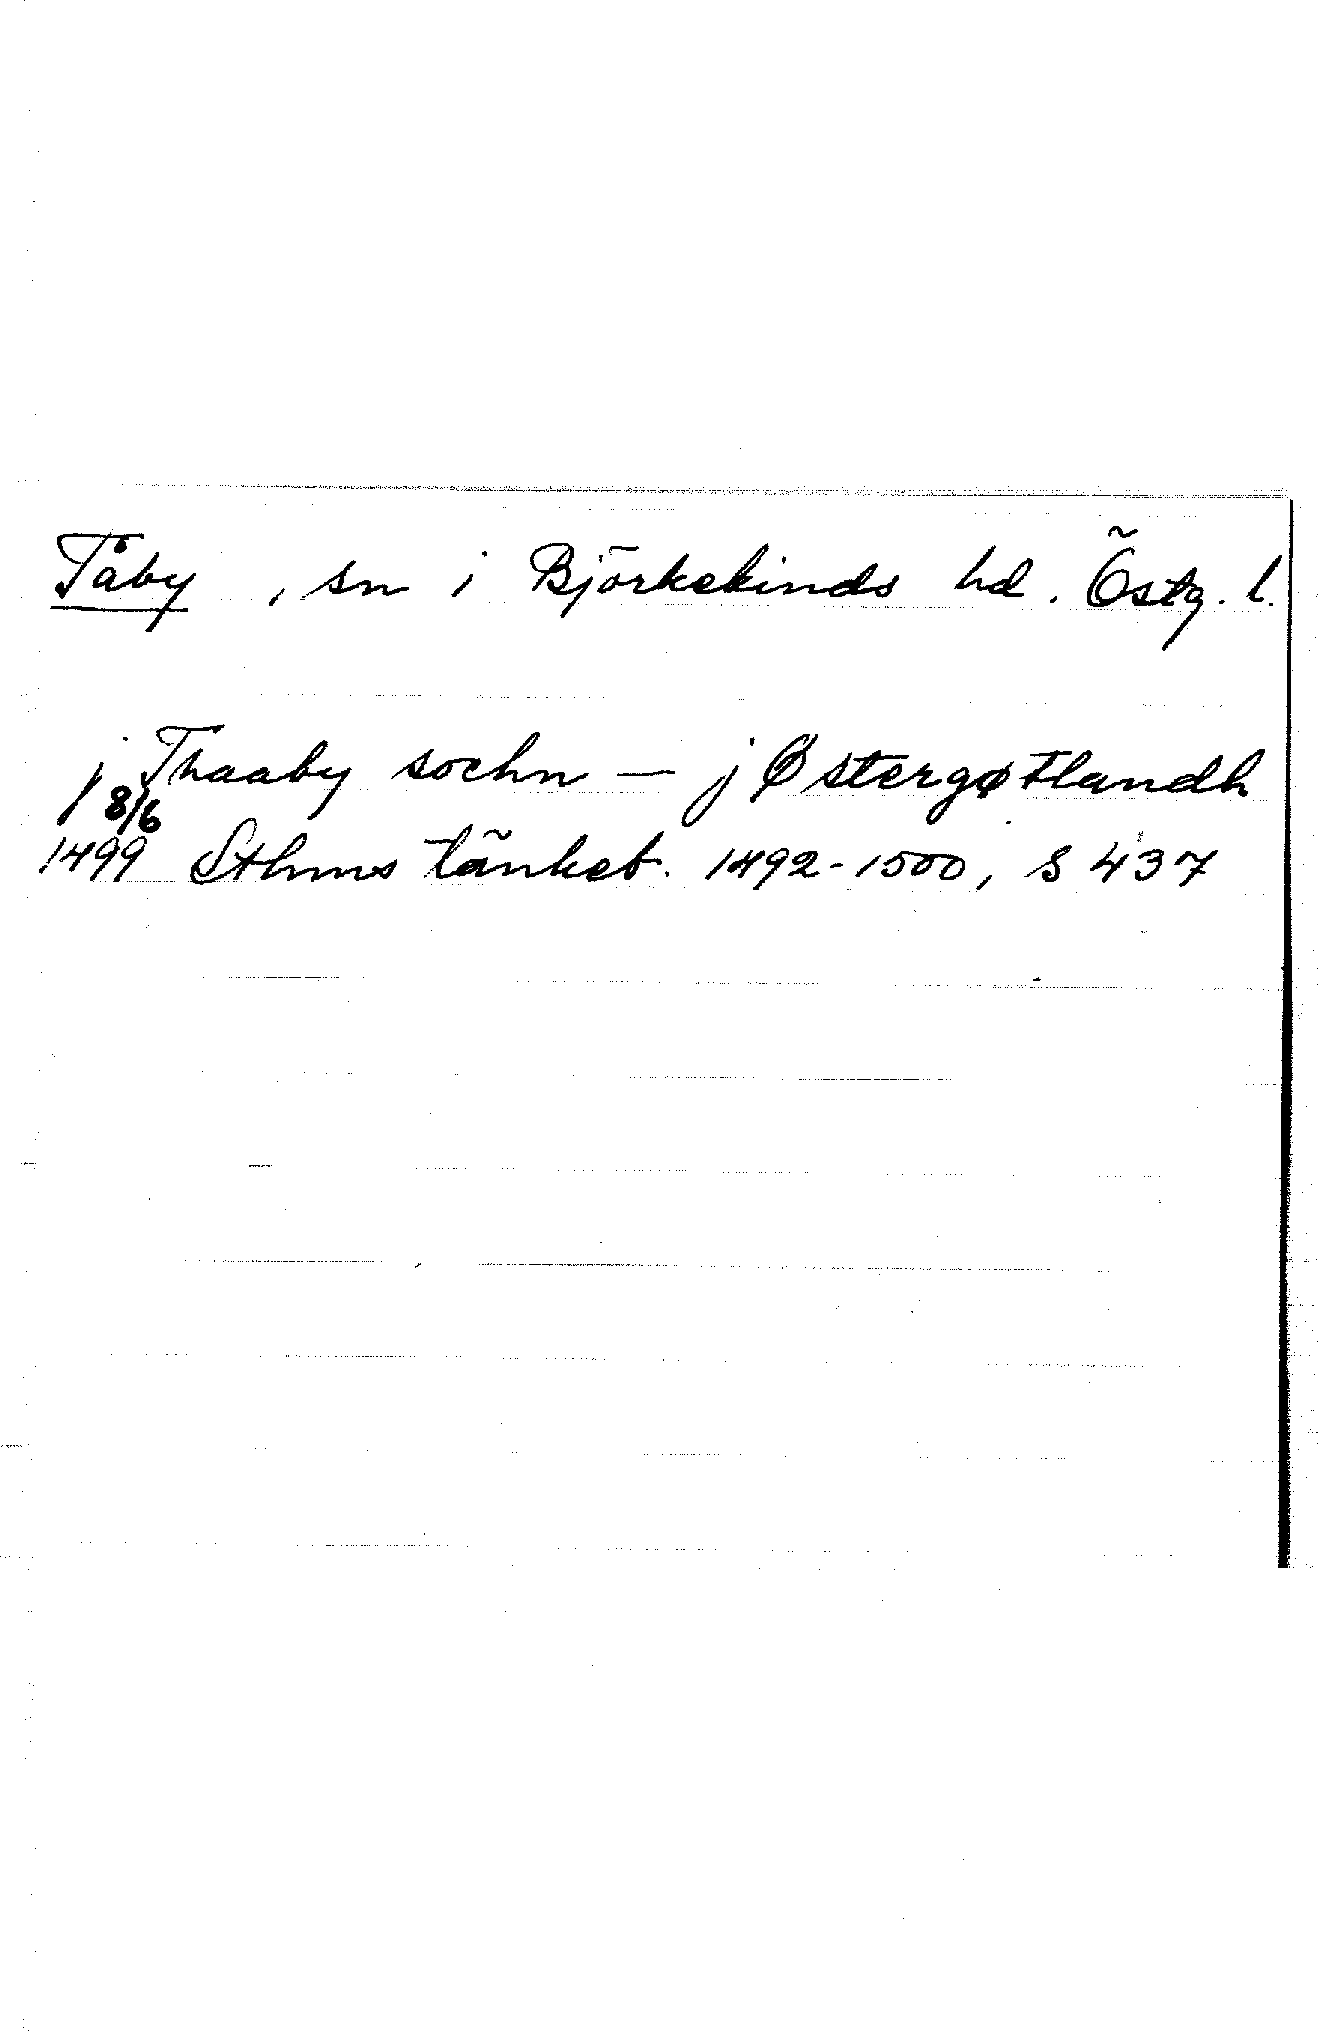 Tåby, sn i Björkekinds hd. Östg. l.
j Thaaby sochn — j Østergøtlandh
8/6
1499 Sthms tänkeb. 1492-1500, S 437